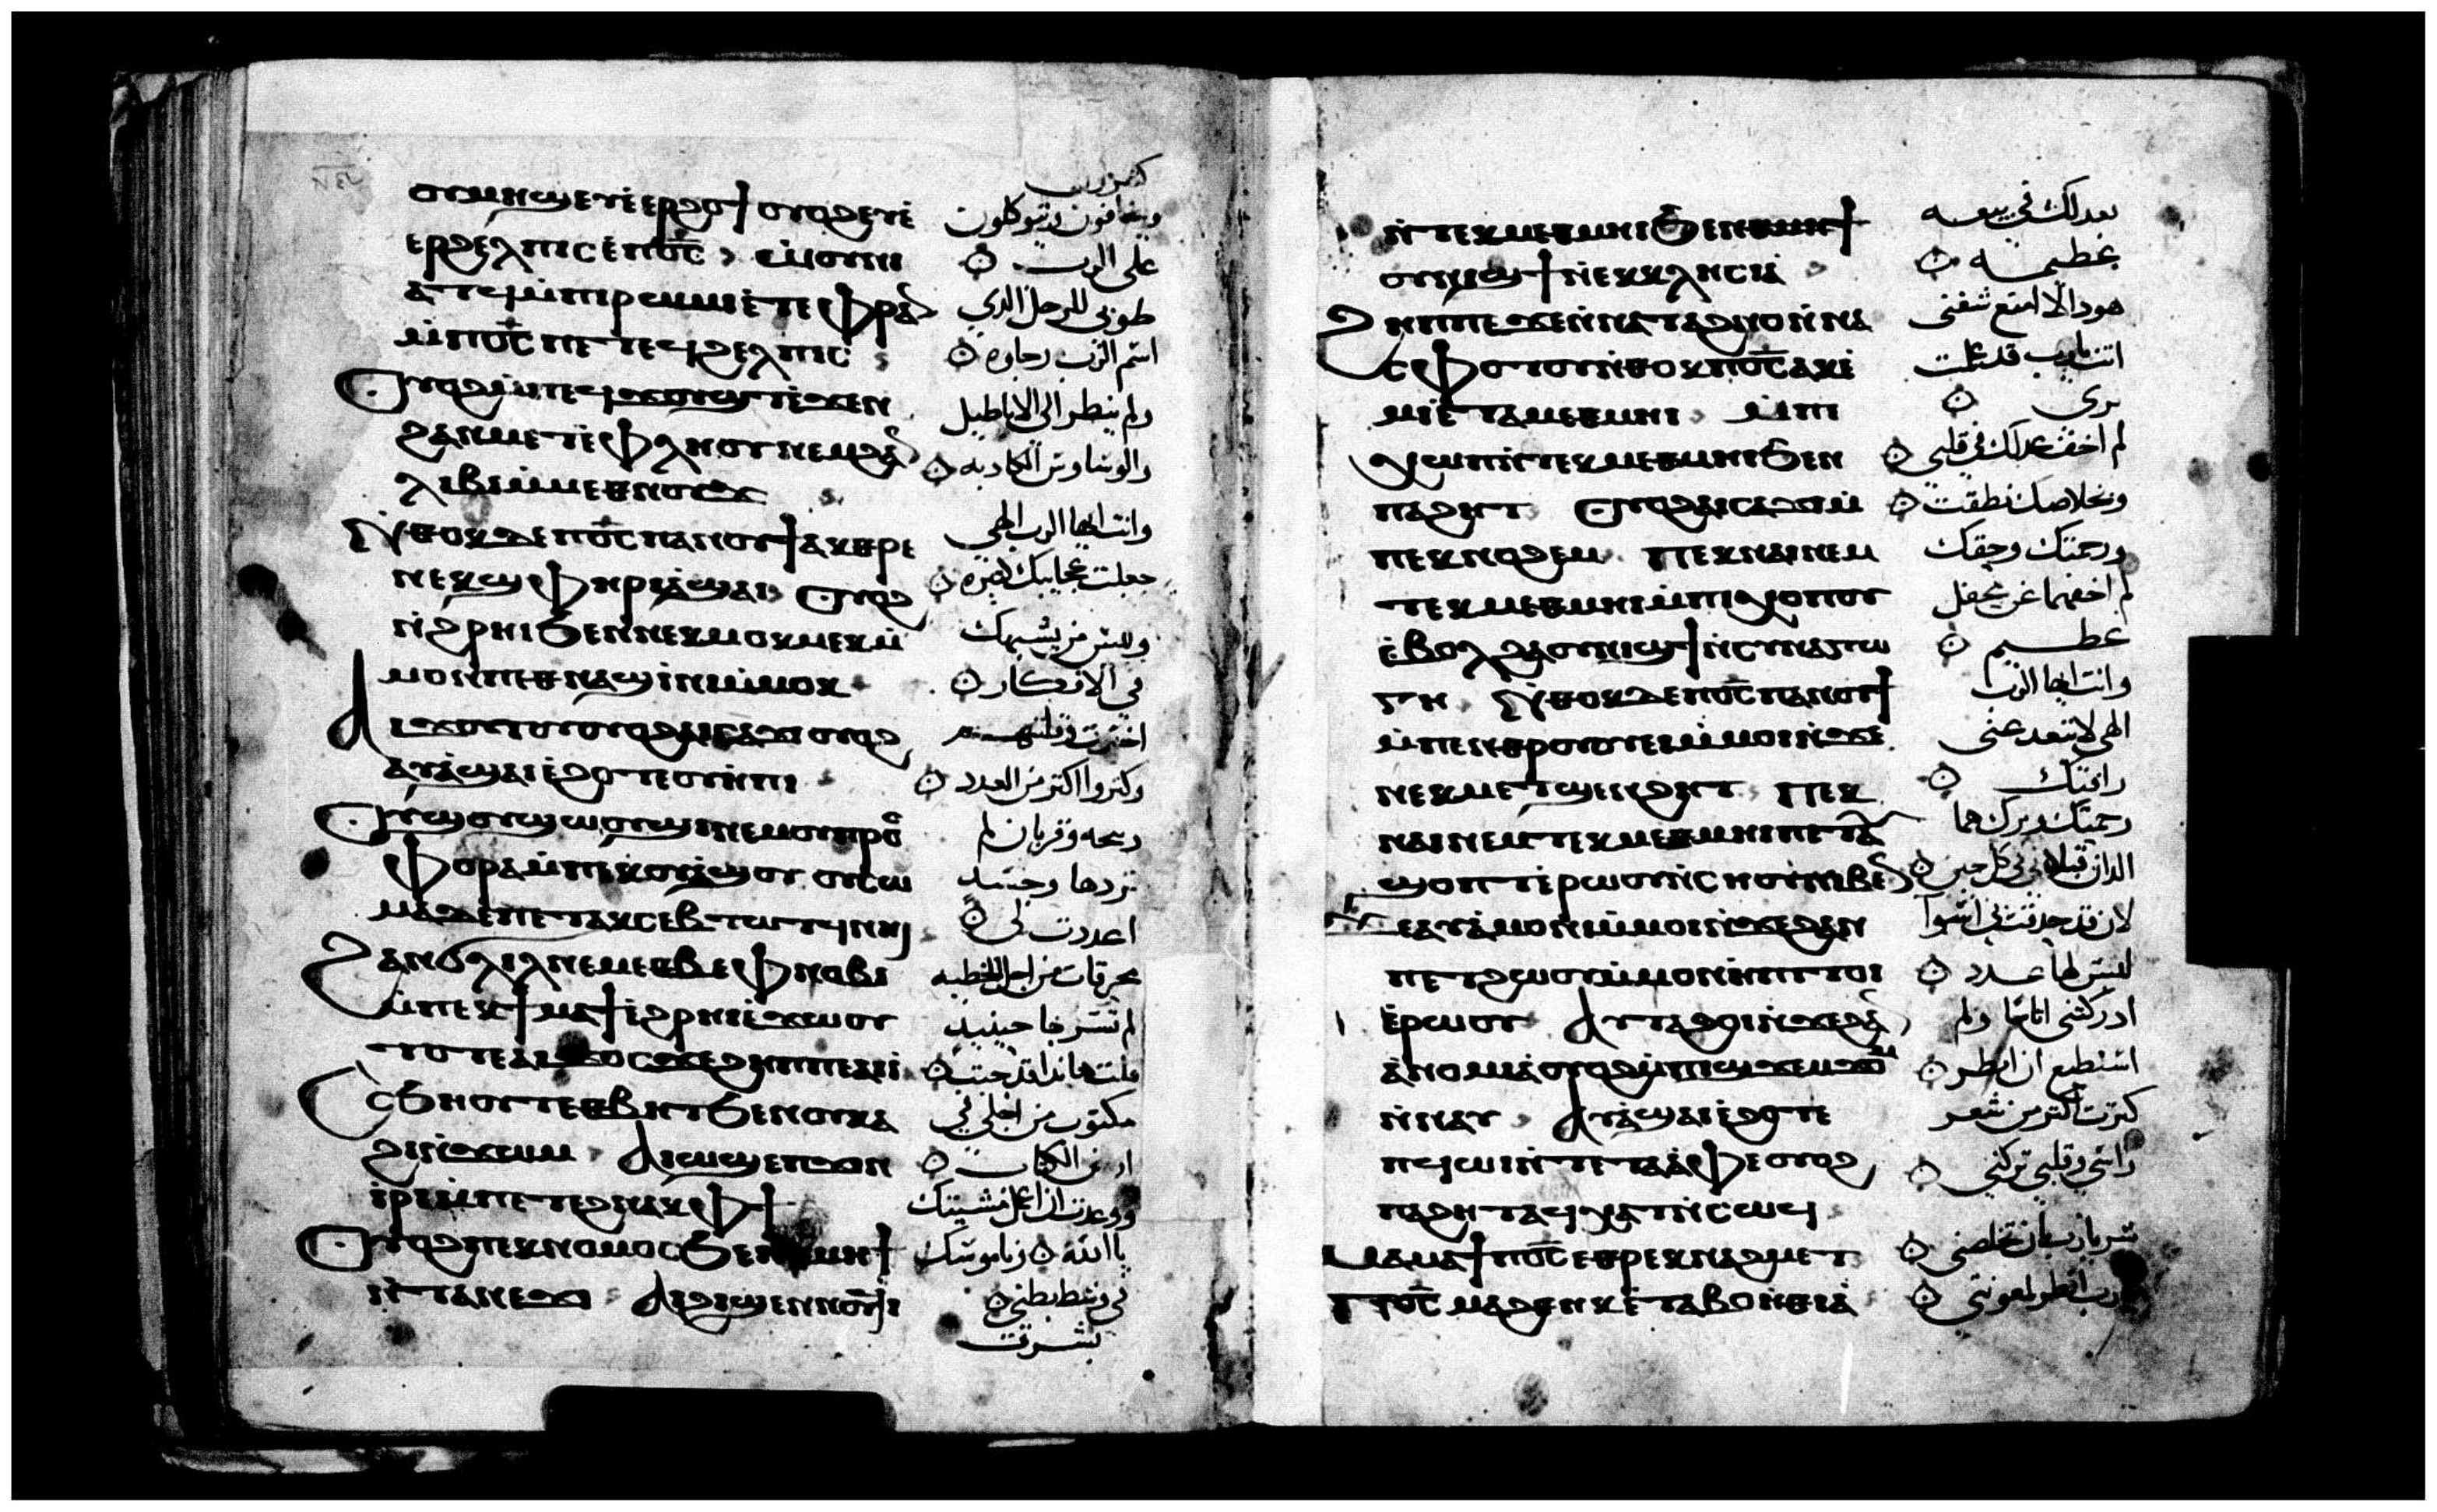 ⲟⲩⲙⲏϣ ⲉⲩⲉ̀ⲉⲣϩⲟϯ ⲟⲩⲟϩ ⲉⲩⲉ̀
ⲉⲣϩⲉⲗⲡⲓⲥ ⲉⲡⲟ̅ⲥ̅ ⲱ̀ⲟⲩⲛⲓ
ⲁⲧϥ ⲙ̀ⲡⲓⲣⲱⲙⲓ ⲉ̀ⲧⲉ ⲫⲣⲁⲛ
ⲙ̀ⲡⲟ̅ⲥ̅ ⲡⲉ ⲧⲉϥϩⲉⲗⲡⲓⲥ
ⲟⲩⲟϩ ⲙ̀ⲡⲉϥϫⲟⲩϣⲧ ⲉ̀ϫⲉⲛ
ϩⲁⲛⲙⲉⲧⲉ̀ⲫⲗⲏⲟⲩ ⲛⲉⲙ ϩⲁⲛ
ⲗⲓⲃⲓ ⲙ̀ⲙⲉⲑⲛⲟⲩϫ
ⲛ̀ⲑⲟⲕ ⲇⲉ ⲡⲟ̅ⲥ̅ ⲡⲁⲛⲟⲩϯ ⲁⲕⲑⲣⲉ
ⲛⲉⲕϣⲫⲏⲣⲓ ⲁ̀ϣⲁⲓ ⲟⲩⲟϩ
ⲛ̀ϩⲣⲏⲓ ϧⲉⲛ ⲛⲉⲕⲙⲟⲕⲙⲉⲕ ⲙ̀
ⲙⲟⲛ ⲡⲉⲑⲛⲁϣⲓ̀ⲛⲓ ⲙ̀ⲙⲟⲕ
ⲁⲓϫⲟⲩⲟⲩ ⲟⲩⲟϩ ⲁⲓⲥⲁϫⲓ ⲟⲩⲟϩ
ⲁⲩⲁ̀ϣⲁⲓ ⲉ̀ϩⲟⲧⲉ ⲟⲩⲏ̀ⲡⲓ
ⲟⲩϣⲟⲩϣⲱⲟⲩϣⲓ ⲛⲉⲙ ⲟⲩⲡⲣⲟⲥ
ⲫⲟⲣⲁ ⲙ̀ⲡⲉⲕⲟⲩⲁ̀ϣⲟⲩ ⲟⲩⲥⲱ
ⲙⲁ ⲇⲉ ⲡⲉⲧⲁⲕⲥⲉⲃⲧⲱⲧϥ ⲛⲏⲓ
ϩⲁⲛϭⲗⲓⲗ ⲛⲉⲙ ⲉⲑⲃⲉ ⲫⲛⲟⲃⲓ
ⲙ̀ⲡⲉⲕϯⲙⲁϯ ⲉ̀ϩⲣⲏⲓ ⲉ̀ϫⲱⲟⲩ
ⲧⲟⲧⲉ ⲁⲓϫⲟⲥ ϫⲉ ϩⲏⲡⲡⲉ ⲁⲓⲓ̀
ⲥ̀ϧⲏⲟⲩⲧ ⲉⲑⲃⲏⲧ ϧⲉⲛ ⲟⲩⲕⲁ
ϩⲓ ⲛ̀ϫⲱⲙ ⲁⲓⲱϣ ⲉⲡϫⲓⲛ
ⲓ̀ⲣⲓ ⲙ̀ⲡⲉⲧⲉϩⲛⲁⲕ ⲫϯ
ⲟⲩⲟϩ ⲡⲉⲕⲛⲟⲙⲟⲥ ϧⲉⲛ ⲑⲙⲏϯ
ⲛ̀ⲧⲁⲛⲉϫⲓ ⲁⲓϩⲓϣⲉⲛⲛⲟⲩϥⲓ
كثيرين
ويخافون ويتوكلون
على الرب
طوبي للرجل الدي
اسم الرب رجاوه
ولم ينظر الى الاباطيل
الكادبه
وانت ايها الرب الهي
جعلت عجايبك كثيره
وليس من يشبهك
في الافكار
اخبرت وقلت
وكتروا اكتر من العدد
دبيحه وقربان لم
تردها وجسد
اعددت لي
محرقات من اجل الخطيه
لم تسر بها حينيد
قلت هاندا قد جيت
مكتوب من اجلي في
الكتاب
مشيتك
يا الله وناموسك
في وسط بطني
بشرت
ⲛ̀ⲧⲉⲕⲙⲉⲑⲙⲏⲓ ϧⲉⲛ ⲑⲙⲏϯ
ⲟⲩⲛⲓϣϯ ⲛ̀ⲉⲕⲕⲗⲏⲥⲓⲁ̀
ϩⲏⲡⲡⲉ ϫⲉⲛ ⲛⲁⲧⲁϩⲛⲟ ⲛ̀ⲛⲁ
ⲥⲫⲟⲧⲟⲩ ⲛ̀ⲑⲟⲕ ⲡⲟ̅ⲥ̅ ⲁⲕⲉ̀
ⲙⲓ ⲉ̀ⲧⲁⲙⲉⲑⲙⲏⲓ ⲙ̀ⲡⲓ
ⲭⲱⲡ ⲛ̀ⲧⲉⲕⲙⲉⲑⲙⲏⲓ ϧⲉⲛ
ⲡⲁϩⲏⲧ ⲟⲩⲟϩ ⲁⲓⲥⲁϫⲓ ⲙ̀
ⲡⲉⲕⲛⲟϩⲉⲙ ⲡⲉⲕⲛⲁⲓ ⲛⲉⲙ
ⲧⲉⲕⲙⲉⲑⲙⲏⲓ ⲙ̀ⲡⲓⲭⲟⲡⲟⲩ
ⲉ̀ⲃⲟⲗ ϩⲁ ⲟⲩⲛⲓϣϯ ⲛ̀ⲥⲩⲛⲁⲅⲱ
ⲅⲏ ⲛ̀ⲑⲟⲕ ⲇⲉ ⲡⲟ̅ⲥ̅ ⲡⲁⲛⲟⲩϯ
ⲙ̀ⲡⲉⲛⲑⲣⲟⲩⲟⲩⲉⲓ ⲙ̀ⲙⲟⲓ ⲛ̀ϫⲉ
ⲛⲉⲕⲙⲉⲧϣⲉⲛϩⲏⲧ ⲡⲉⲕ
ⲛⲁⲓ ⲛⲉⲙ ⲧⲉⲕⲙⲉⲑⲙⲏⲓ ⲡⲉⲧⲁⲩ
ϣⲟⲡⲧ ⲉ̀ⲣⲱⲟⲩ ⲛ̀ⲥⲏⲟⲩ ⲛⲓⲃⲉⲛ
ϫⲉ ⲁⲩⲁ̀ⲙⲟⲛⲓ ⲙ̀ⲙⲟⲓ ⲛ̀ϫⲉ ϩⲁⲛ
ⲡⲉⲧϩⲱⲟⲩ ⲙ̀ⲙⲟⲛ ⲏ̀ⲡⲓ ⲧⲟⲓ
ⲉ̀ⲣⲱⲟⲩ ⲁⲩⲧⲁϩⲟⲓ ⲛ̀ϫⲉ ϩⲁ
ⲁ̀ⲛⲟⲙⲓⲁ̀ ⲟⲩⲟϩ ⲙ̀ⲡⲓϣϫⲉⲙϫⲟⲙ
ⲛ̀ⲛⲁⲩ ⲁⲩⲁ̀ϣⲁⲓ ⲉ̀ϩⲟⲧⲉ
ⲡϥⲱⲓ ⲛ̀ⲧⲉ ⲧⲁⲁ̀ⲫⲉ ⲟⲩⲟϩ
ⲡⲁϩⲏⲧ ⲁϥⲭⲁⲧ ⲛ̀ⲥⲱϥ
ⲙⲁⲙⲁϯ ⲡⲟ̅ⲥ̅ ⲉⲑⲣⲉⲕⲛⲁϩⲙⲉⲧ
ⲡⲟ̅ⲥ̅ ⲙⲁϩⲑⲏⲕ ⲉ̀ⲧⲁⲃⲟⲏ̀ⲑⲓⲁ̀
بعدلك في بيعه
عظيمه
هودا لا امنع شفتي
انت يارب قد علمت
بري
لم اخف عدلك في قلبي
وبخلاصك نطقت
ورحمتك وحقك
لم اخفهما عن محفل
عظيم
وانت ايها الرب
الهي لا تبعد عني
رافتك
رحمتك وبرك هما
في كل حين
ليس لها عدد
ادركتني اتامي ولم
استطيع ان انظر
كترت اكتر من شعر
راسي وقلبي تركني
سر يارب ان تخلصني
يارب انظر لمعونتي